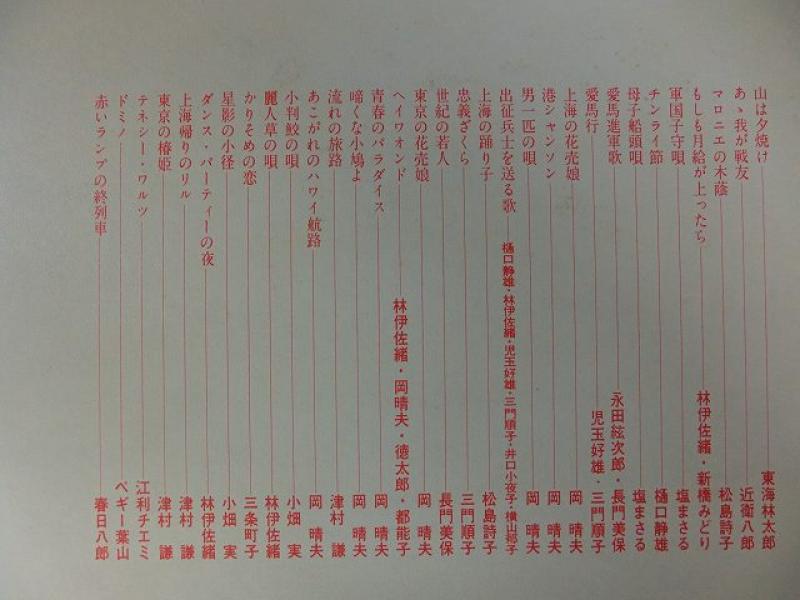 山は夕焼け 東海林太郎
あゝ我が戦友 近衛八郎
マロニエの木蔭 松島詩子
もしも月給が上ったら 林伊佐緒・新橋みどり
軍国子守唄 塩まさる
チンライ節 樋口静雄
母子船頭唄 塩まさる
愛馬進軍歌 永田絃次郎・長門美保
愛馬行 児玉好雄・三門順子
上海の花売娘 岡 晴夫
港シャンソン 岡 晴夫
男一匹の唄 岡 晴夫
出征兵士を送る歌 樋口静雄・林伊佐緒・児玉好雄・三門順子・井口小夜子・横山郁子
上海の踊り子 松島詩子
忠義ざくら 三門順子
世紀の若人 長門美保
東京の花売娘 岡 晴夫
ヘイワオンド 林伊佐緒・岡晴夫・徳太郎・都能子
青春のパラダイス 岡 晴夫
啼くな小鳩よ 岡 晴夫
流れの旅路 津村 謙
あこがれのハワイ航路 岡 晴夫
小判鮫の唄 小畑 実
麗人草の唄 林伊佐緒
かりそめの恋 三条町子
星影の小径 小畑 実
ダンス・パーティーの夜 林伊佐緒
上海帰りのリル 津村 謙
東京の椿姫 津村 謙
テネシー・ワルツ 江利チエミ
ドミノ ペギー葉山
赤いランプの終列車 春日八郎